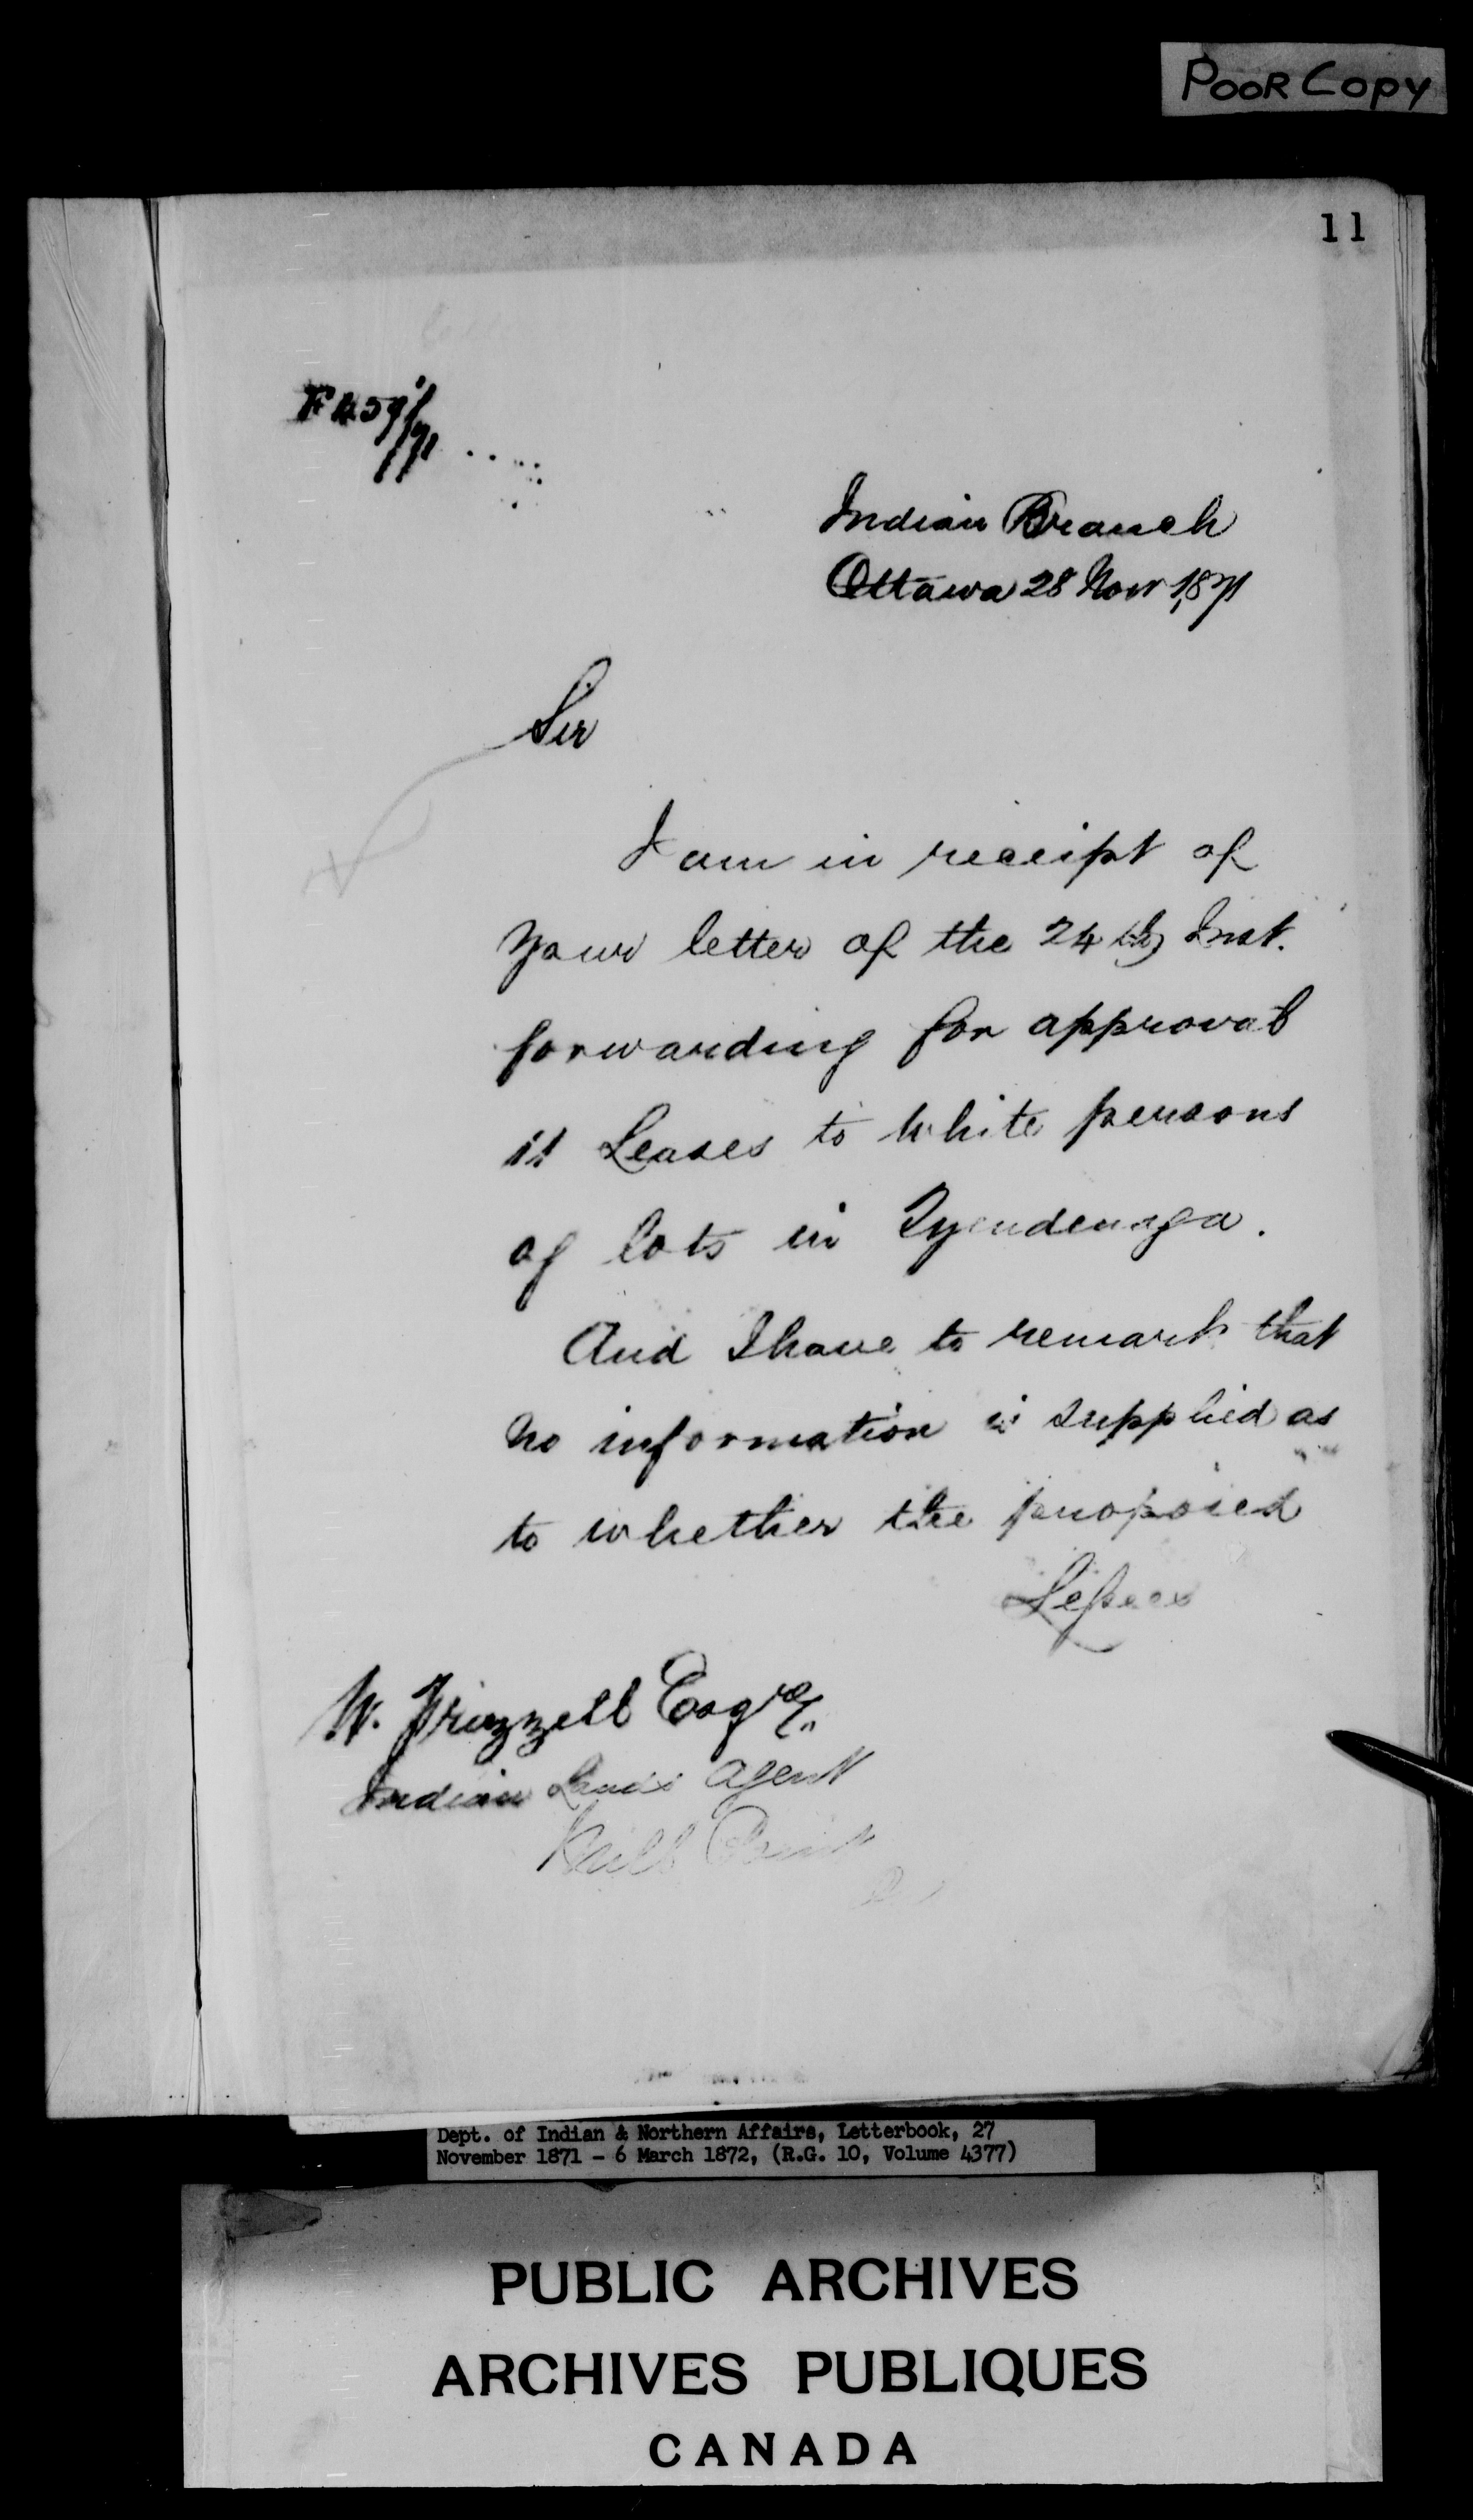 POOR COPY
11
F 459/71
Indian Branch
Ottawa 28 Nov 1871
Sir
I am in receipt of
your letter of the 24th Inst.
forwarding for approval
11 Leases to White persons
of lots in Tyendenaga.
And I have to remark that
no information is supplied as
to whether the proposed
Lessees
W. Frizzell Esqre.
Indian Lands Agent
Mill Point
Dept. of Indian & Northern Affairs, Letterbook, 27
November 1871 - 6 March 1872, (R.G. 10, Volume 4377)
PUBLIC ARCHIVES
ARCHIVES PUBLIQUES
CANADA